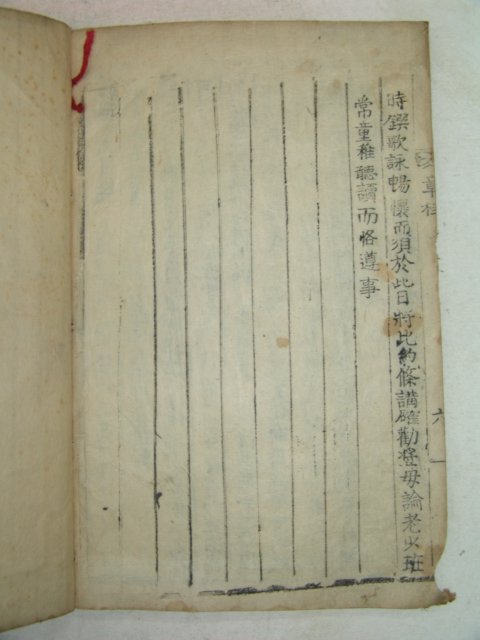 時饌歌詠暢懷而須於此日將此約條講確勸懲毋論老少班
常童稚聽讀而恪遵事
章
六